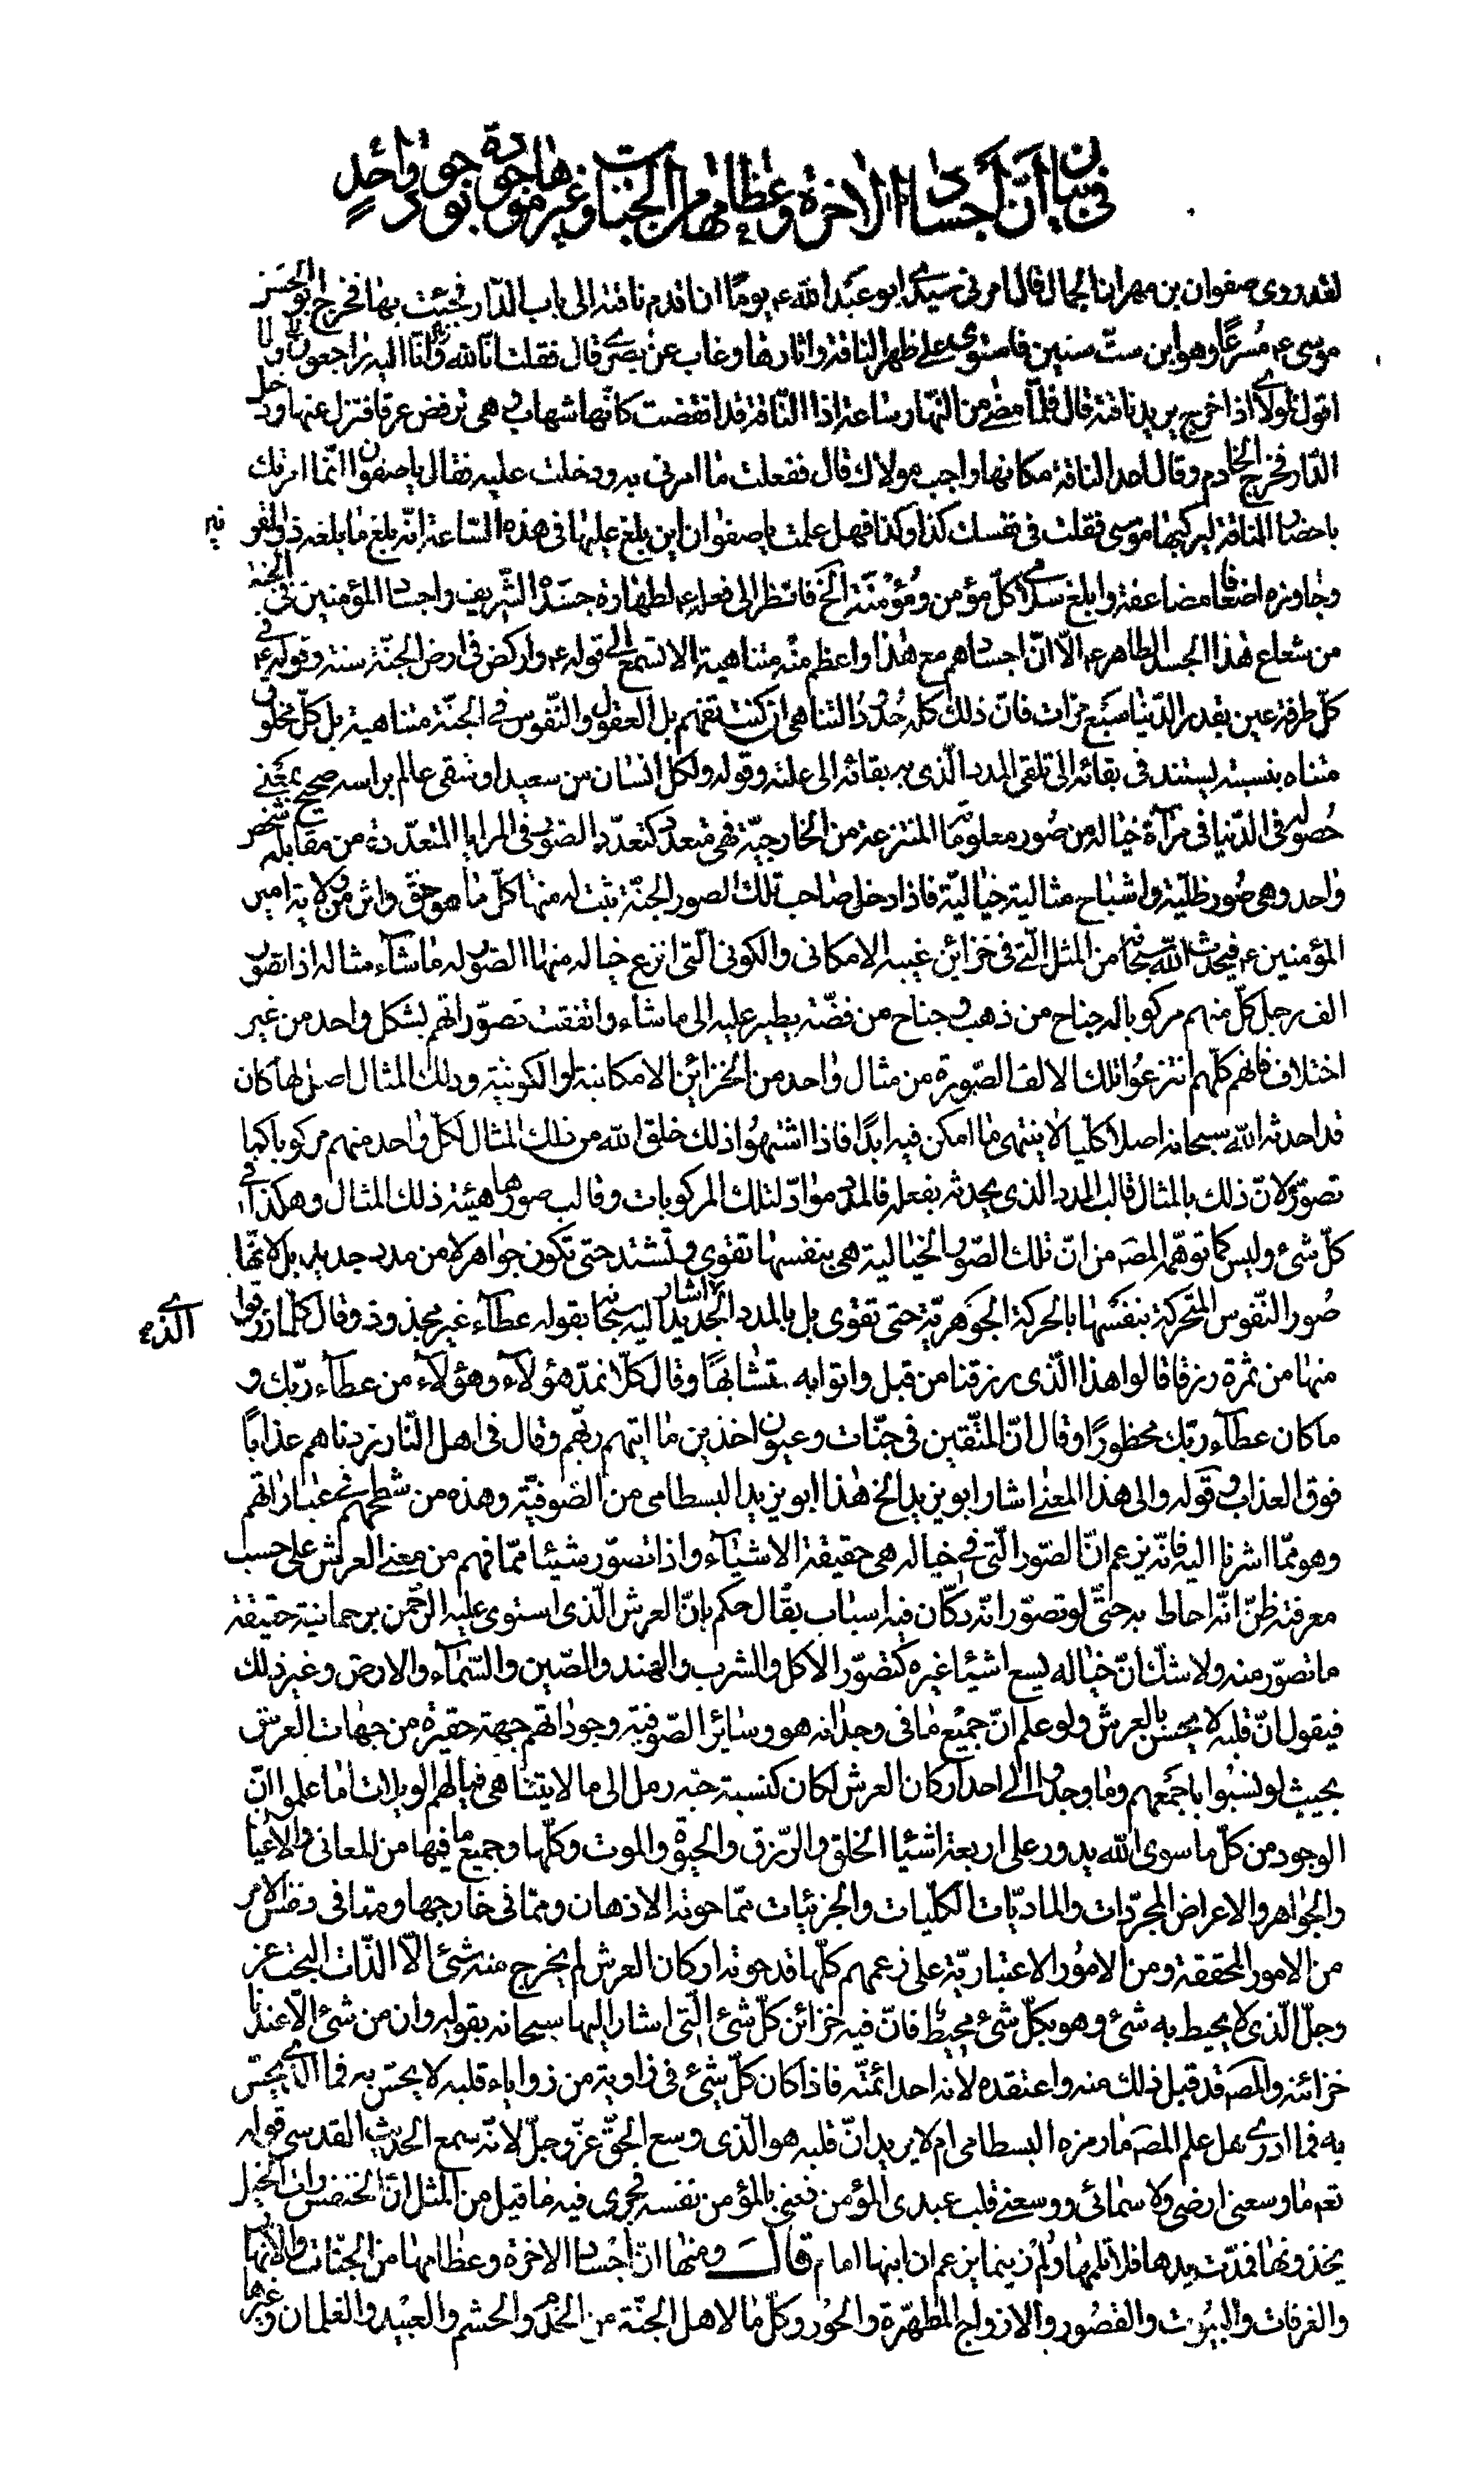 في بيان أنّ أجساد الاخرة وعظامها من الجنات وغيرها موجودة بوجود واحد
لقد روى صفوان بن مهران الجمال قال امرني سيدي ابو عبد الله ع يومًا ان اقدم ناقته الى باب الدّار فجئت بها فخرج ابو الحسن
موسى ع مُسرعًا وهو ابن ستّ سنين فاستوى على ظهر الناقة واثارها وغاب عن بصري قال فقلت انّا لله وانّا اليه راجعون وما
اقول لمولاي اذا خرج يريد ناقته قال فلمّا مضى من النّهار ساعة اذا النّاقة قد انقضت كانّها شهاب وهي ترفض عرقا فنزل عنها ودخل
الدّار فخرج الخادم وقال اعد الناقة مكانها واجب مولاك قال ففعلت ما امرني به ودخلت عليه فقال يا صفوان انّما امرتك
باحضار الناقة ليركبها موسى فقلت في نفسك كذا وكذا فهل علمت يا صفوان اين بلغ عليها في هذه السّاعة انّه بلغ ما بلغه ذو القرنين
وجاوزه اضعافا مضاعفة وابلغ سلامي كلّ مؤمن ومُؤمنة الخ فانظر الى فعله ع لطهارة جسَده الشّريف واجساد المؤمنين في الجنة
من شعاع هٰذا الجسد الطاهر ع الّا انّ اجسادهم مع هٰذا واعظم منه متناهية الا تسمع الى قوله ع واركض في ارض الجنّة سنة وقوله ع في
كلّ طرفة عين بقدر الدّنيا سبع مرّات فانّ ذلك كله حُدُود التناهي ان كنت تفهم بل العقول والنّفوس في الجنّة متناهية بل كلّ مخلوق
متناه بنسبته يستند في بقائه الى تلقي المدد الّذي به بقائه الى علته وقوله ولكل انسان من سعيد او شقي عالم براسه صحيح بمعنى
حُصوله في الدّنيا في مرآة خياله من صُور معلوماته المنتزعة من الخارجيّة فهي متعددة كتعدّد الصور في المرايا المتعدّدة من مقابله شخص
واحد وهي صُور ظليّة واشباح مثالية خياليّة فاذا دخل صاحب تلك الصور الجنّة ثبت له منها كلّ ما هو حقّ واثر من ولاية امير
المؤمنين ع فيحدث الله سبحانه من المثل الّتي في خزائن غيبه الامكاني والكوني الّتي انتزع خياله منها الصور له ما شاء مثاله اذا تصور
الف رجل كلّ منهم مركوبا له جناح من ذهب وجناح من فضّة يطير عليه الى ما شاء واتفقت تصوّراتهم بشكل واحد من غير
اختلاف فانهم كلّهم انتزعُوا تلك الالف الصّورة من مثال واحد من الخزائن الامكانية او الكونية وذلك المثال اصل لها كان
قد احدثه الله سبحانه اصلا كليا لا ينتهي ما امكن فيه ابدًا فاذا اشتهوا ذلك خلق الله من ذلك المثال لكل واحد منهم مركوبا كما
تصوّر لانّ ذلك بالمثال قالب المدد الذي يحدثه بفعله فالمدد موادّ لتلك المركوبات وقالب صورها هيئة ذلك المثال وهكذا في
كلّ شئ وليس كما توهّمه المصَ من انّ تلك الصّور الخيالية هي بنفسها تقوى وتشتد حتى تكون جواهر لا من مدد جديد بل لانّها
صُور النّفوس المتحركة بنفسها بالحركة الجوهريّة حتى تقوى بل بالمدد الجديد الذي اشار اليه سبحانه بقوله عطآء غير مجذوذ وقال كلّما رزقوا
منها من ثمرة رزقا قالوا هذا الّذي رزقنا من قبل واتوا به متشابهًا وقال كلّا نمدّ هؤلآء وهؤلآء من عطآء ربّك و
ما كان عطآء ربّك محظورًا وقال انّ المتّقين في جنّات وعيون اخذين ما اتيهم ربّهم وقال في اهل النّار زدناهم عذابًا
فوق العذاب وقوله والى هذا المعنى اشار ابو يزيد الخ هٰذا ابو يزيد البسطامي من الصّوفيّة وهذه من شطحهم عباراتهم
وهو ممّا اشرنا اليه فانّه يزعم انّ الصّور الّتي في خياله هي حقيقة الاشيآء واذا تصوّر شيئا ممّا فهم من معنى العرش على حسب
معرفته ظنّ انّه احاط به حتّى لو تصوّر انّه ركّان فيه اسباب يقال حكم بانّ العرش الّذي استوى عليه الرّحمن برحمانيته حقيقة
ما تصوّر منه ولا شكّ انّ خياله يسع اشيئا غيره كتصوّر الاكل والشرب والهند والصّين والسّمآء والارض وغير ذلك
فيقول انّ قلبه لا يحسّ بالعرش ولو علم انّ جميع ما في وجدانه هو وسائر الصّوفية وجوداتهم جهة حقيرة من جهات العرش
بحيث لو نسبُوا باجمعهم وما وجدوا الى احد اركان العرش لكان كنسبة حبّة رمل الى ما لا يتناهى فيا لهم الويلات اما علموا انّ
الوجود من كلّ ما سوى الله يدور على اربعة اشيا الخلق والرّزق والحيوة والموت وكلّها وجميع ما فيها من المعاني والاعيان
والجواهر والاعراض المجرّدات والماديّات الكليّات والجزئيات ممّا حوته الاذهان وممّا في خارجها وممّا في نفس الامر
من الامور المحققة ومن الامُور الاعتباريّة على زعمهم كلّها قد حوته اركان العرش لم يخرج منه شئ الّا الذّات البحت عز
وجلّ الّذي لا يحيط به شئ وهو بكلّ شئ محيط فانّ فيه خزائن كلّ شئ الّتي اشار اليها سبحانه بقوله وان من شئ الّا عندنا
خزائنه والمصَ قد قبل ذلك منه واعتقده لانه احد ائمّته فاذا كان كلّ شئ في زاوية من زواياء قلبه لا يحسّ به فما الذي يحسّ
به فما ادري هل علم المصَ ما رمزه البسطامي ام لا يريد انّ قلبه هو الّذي وسع الحقّ عزّ وجلّ لانّه سمع الحديث القدسي قوله
تعه ما وسعني ارضي ولا سمائي ووسعني قلب عبدي المؤمن فعنى بالمؤمن نفسه فجرى فيه ما قيل من المثل انّ الخنفس رات الخيل
يحذونها فمدّت يدها فلا قلمها ولم زينما بن عم ان ابنها امام قالَ ومنها انّ اجساد الاخرة وعظامها من الجنّات والانهار
والغرفات والبيُوت والقصُور والازواج المطهّرة والحُور وكلّ ما لاهل الجنّة من الخدم والحشم والعبيد والغلمان وغيرها